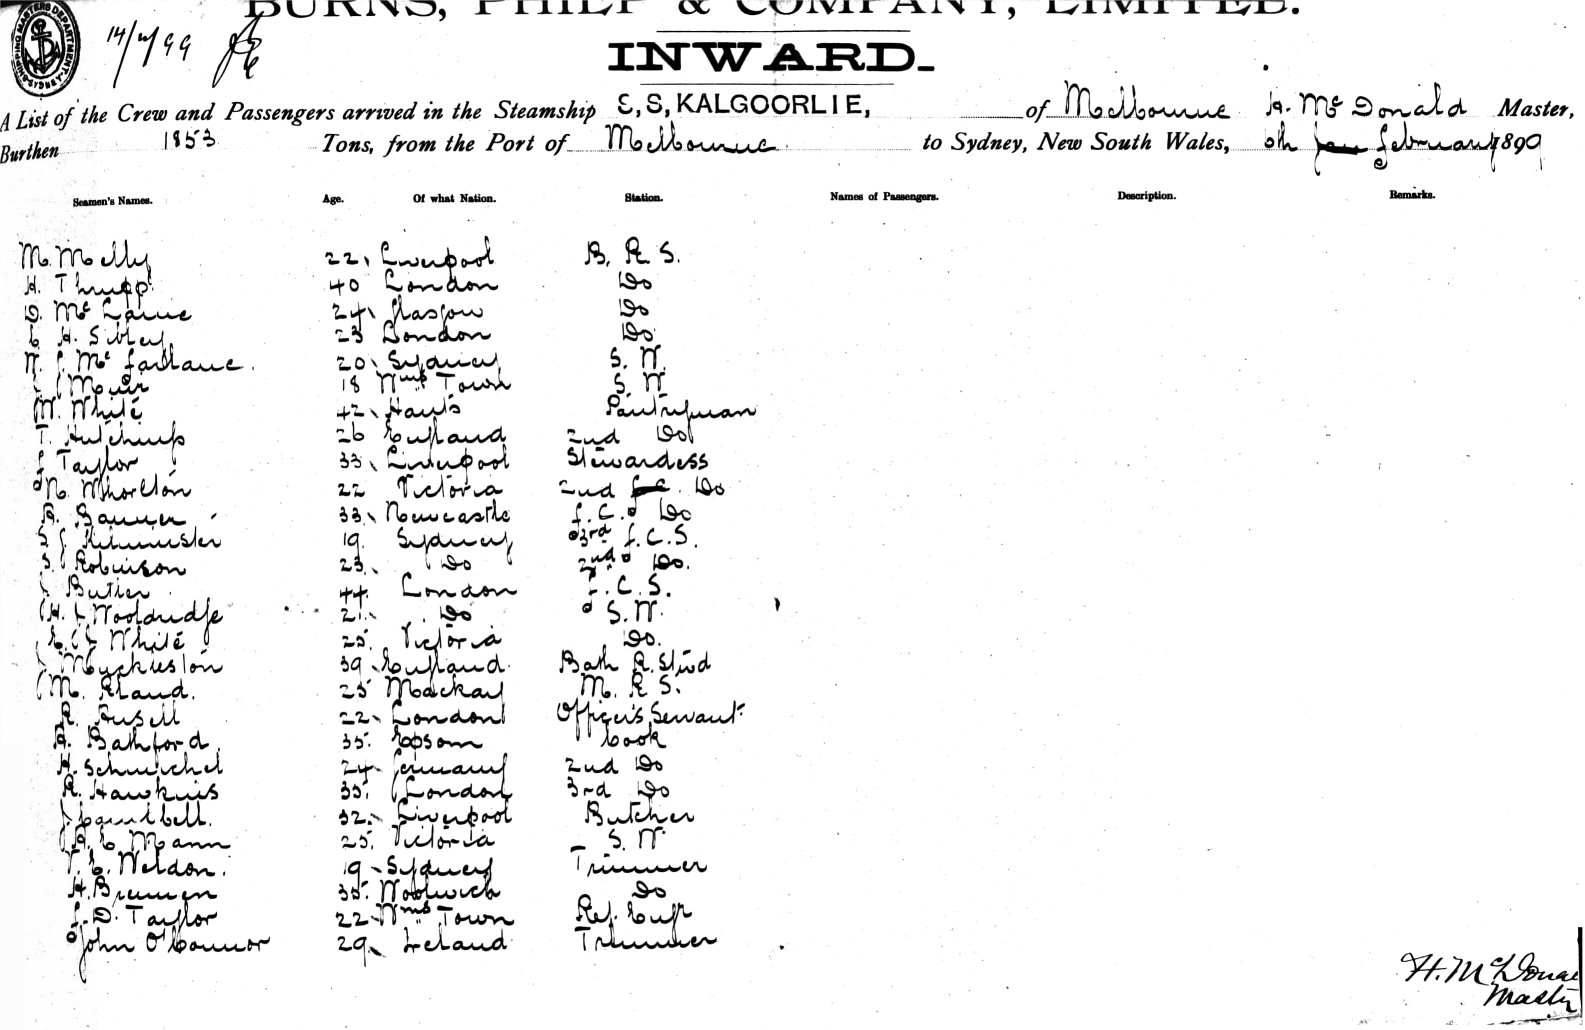 BURNS, PHILP & COMPANY, LIMITED.
SHIPPING MASTERS DEPARTMENT SYDNEY
14/2/99
INWARD.
A List of the Crew and Passengers arrived in the Steamship E,S,KALGOORLIE, of Melbourne H. McDonald Master,
Burthen 1853 Tons, from the Port of Melbourne to Sydney, New South Wales, 6th Jan February 1899
Seamen's Names. Age. Of what Nation. Station. Names of Passengers. Description. Remarks.
M. Melly 22 Liverpool B. R. S.
H. Thrupp 40 London Do
D. Mc Larne 24 Glasgow Do
C H. Sibley 23 London Do
W. J. Mc Farlane. 20 Sydney S. W.
J Muir 18 Wms Town S. W
W. White 42 Hants Pantryman
T. Hutchings 26 England 2nd Do
J Taylor 33 Liverpool Stewardess
N. Whorlton 22 Victoria 2nd Do
A. Banner 33 Newcastle F. C. Do
S J. Kilminster 19. Sydney 3rd F. C. S.
S. Robinson 23. Do 2nd Do.
J. Butler 44. London F. C. S.
H. J Wooldridge 21. Do S. W.
E. J White 25. Victoria Do.
J Muckleston 39 England. Bath R. Stwd
M. Rland. 25 Mackay M. R S.
R. Ansell 22 London Officer's Servant
A. Bathford. 35. Epsom Cook
H. Schmichel 24 Germany 2nd Do
R. Hawkins 35. London 3rd Do
J Campbell. 32. Liverpool Butcher
A. E Mann 25. Victoria S. W
V. E. Weldon. 19 Sydney Trimmer
H. Bremen 35. Woolwich Do
J. D. Taylor 22 Wms Town Ref. Engr
John O'Connor 29. Ireland Trimmer
H. McDonal
Master